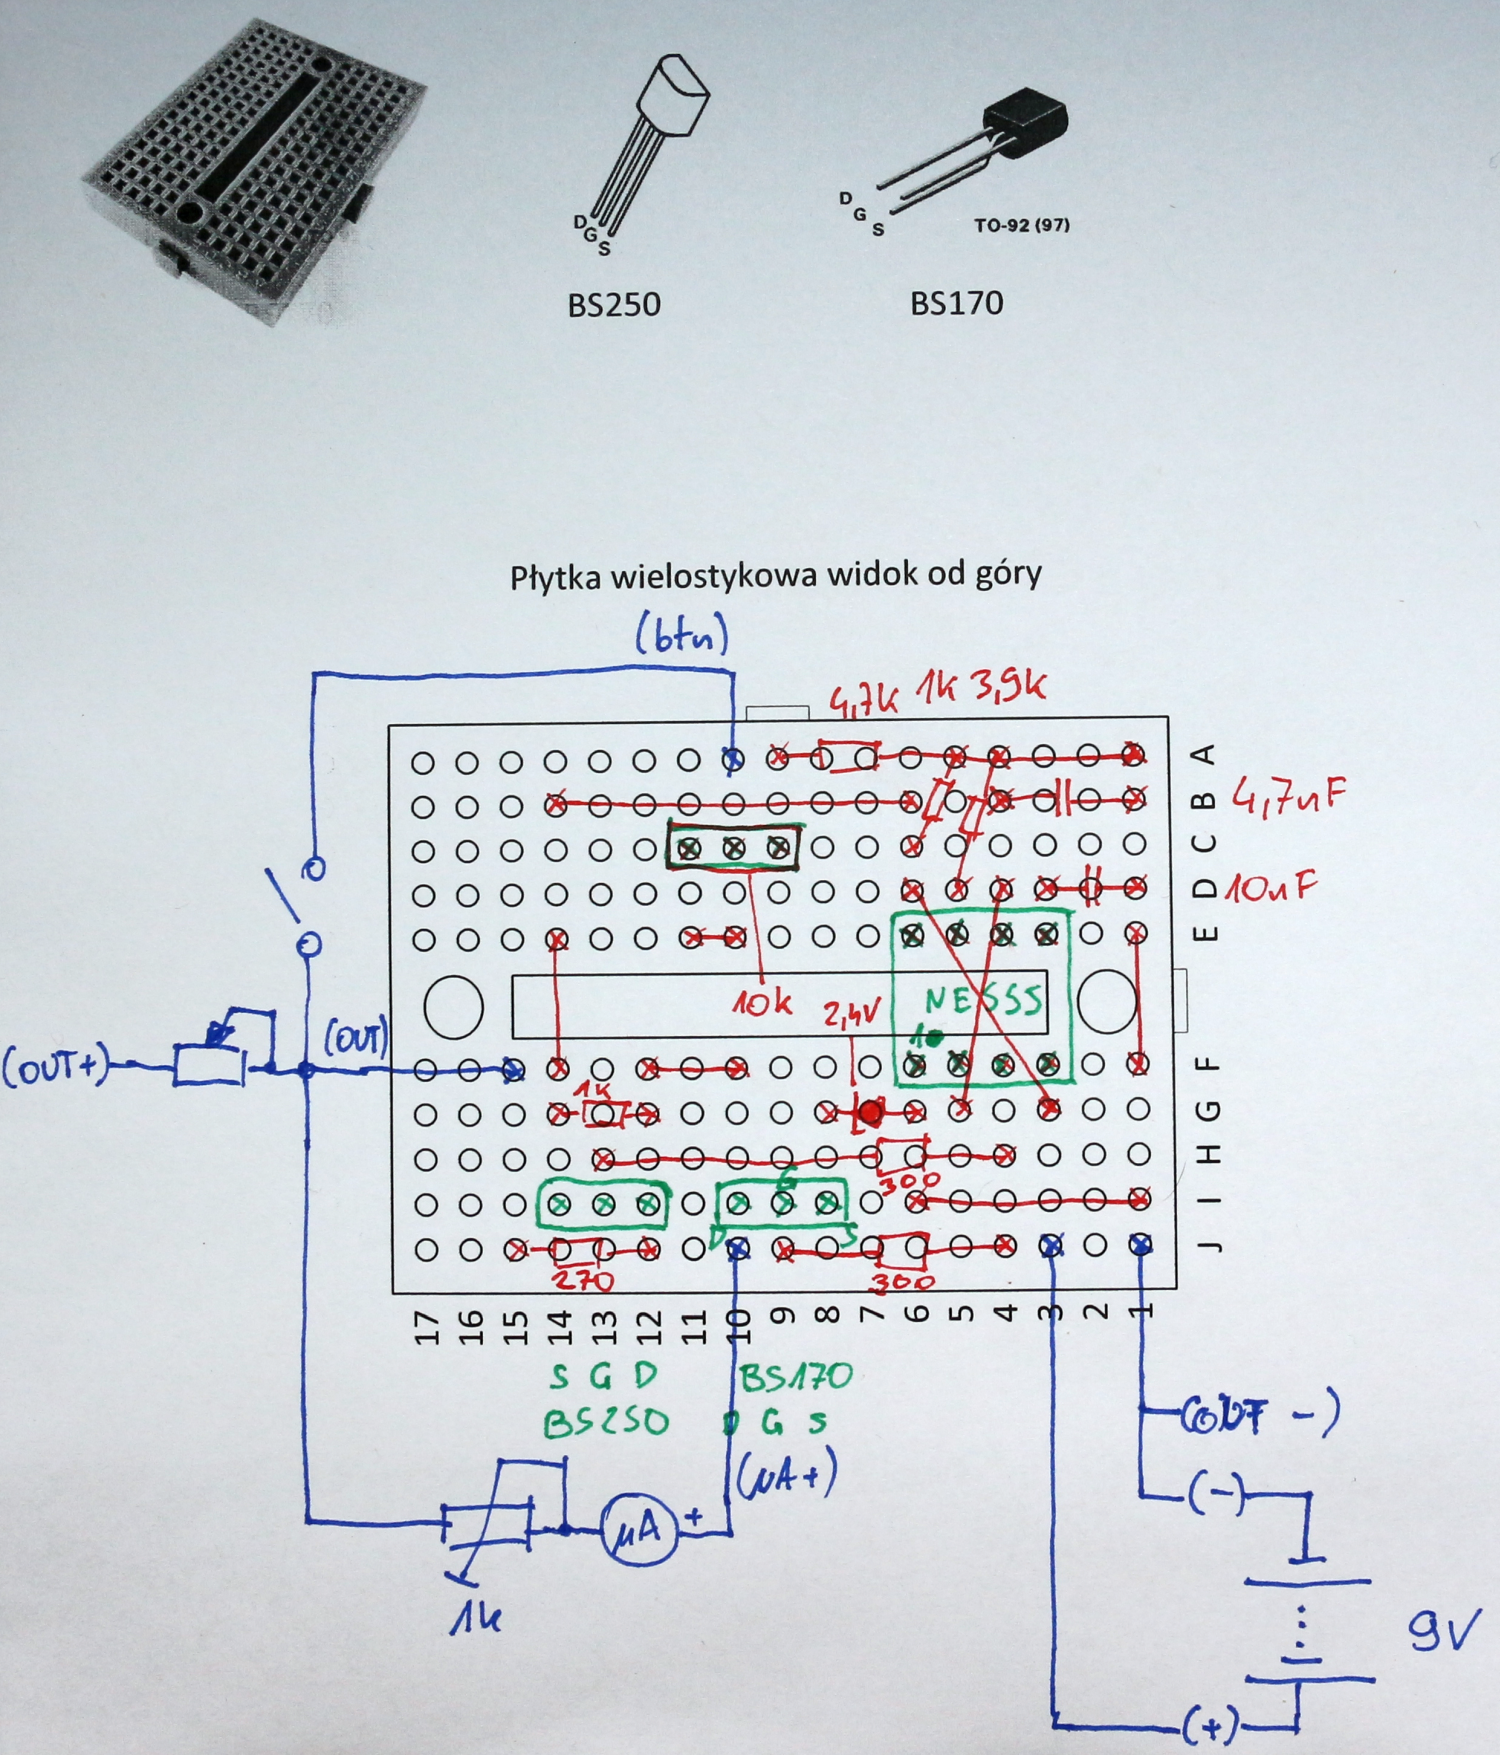 D
G
S
BS250
D
G
S
TO-92 (97)
BS170
Płytka wielostykowa widok od góry
(btn)
4,7k 1k 3,9k
A
B 4,7nF
C
D 10nF
E
10k
2,4V
NE555
1
(OUT+)
(OUT)
F
1k
G
H
300
G
I
D
S
J
270
300
17 16 15 14 13 12 11 10 9 8 7 6 5 4 3 2 1
S G D
BS250
BS170
D G S
(OUT -)
(μA+)
(-)
μA
+
1k
9V
(+)